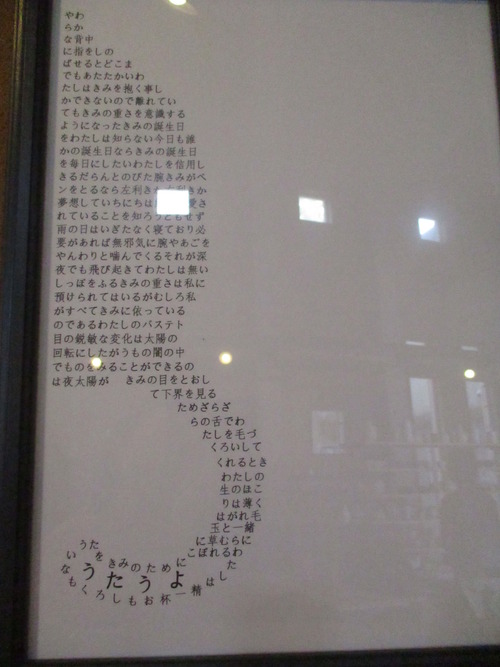 やわ
らか
な背中
に指をしの
ばせるとどこま
でもあたたかいわ
たしはきみを抱く事し
かできないので離れてい
てもきみの重さを意識する
ようになったきみの誕生日
をわたしは知らない今日も誰
かの誕生日ならきみの誕生日
を毎日にしたいわたしを信用し
きるだらんとのびた腕きみがペ
ンをとるなら左利き きか
夢想していちにちは 愛さ
れていることを知ろうともせず
雨の日はいぎたなく寝ており必
要があれば無邪気に腕やあごを
やんわりと噛んでくるそれが深
夜でも飛び起きてわたしは無い
しっぽをふるきみの重さは私に
預けられてはいるがむしろ私
がすべてきみに依っている
のであるわたしのバステト
目の鋭敏な変化は太陽の
回転にしたがうもの闇の中
でものをみることができるの
は夜太陽が きみの目をとおし
て下界を見る
ためざらざ
らの舌でわ
たしを毛づ
くろいして
くれるとき
わたしの
生のほこ
りは薄く
はがれ毛
玉と一緒
に草むらに
こぼれるわ
たしは精一杯おもしろくもないうたをきみのために
うたうよ